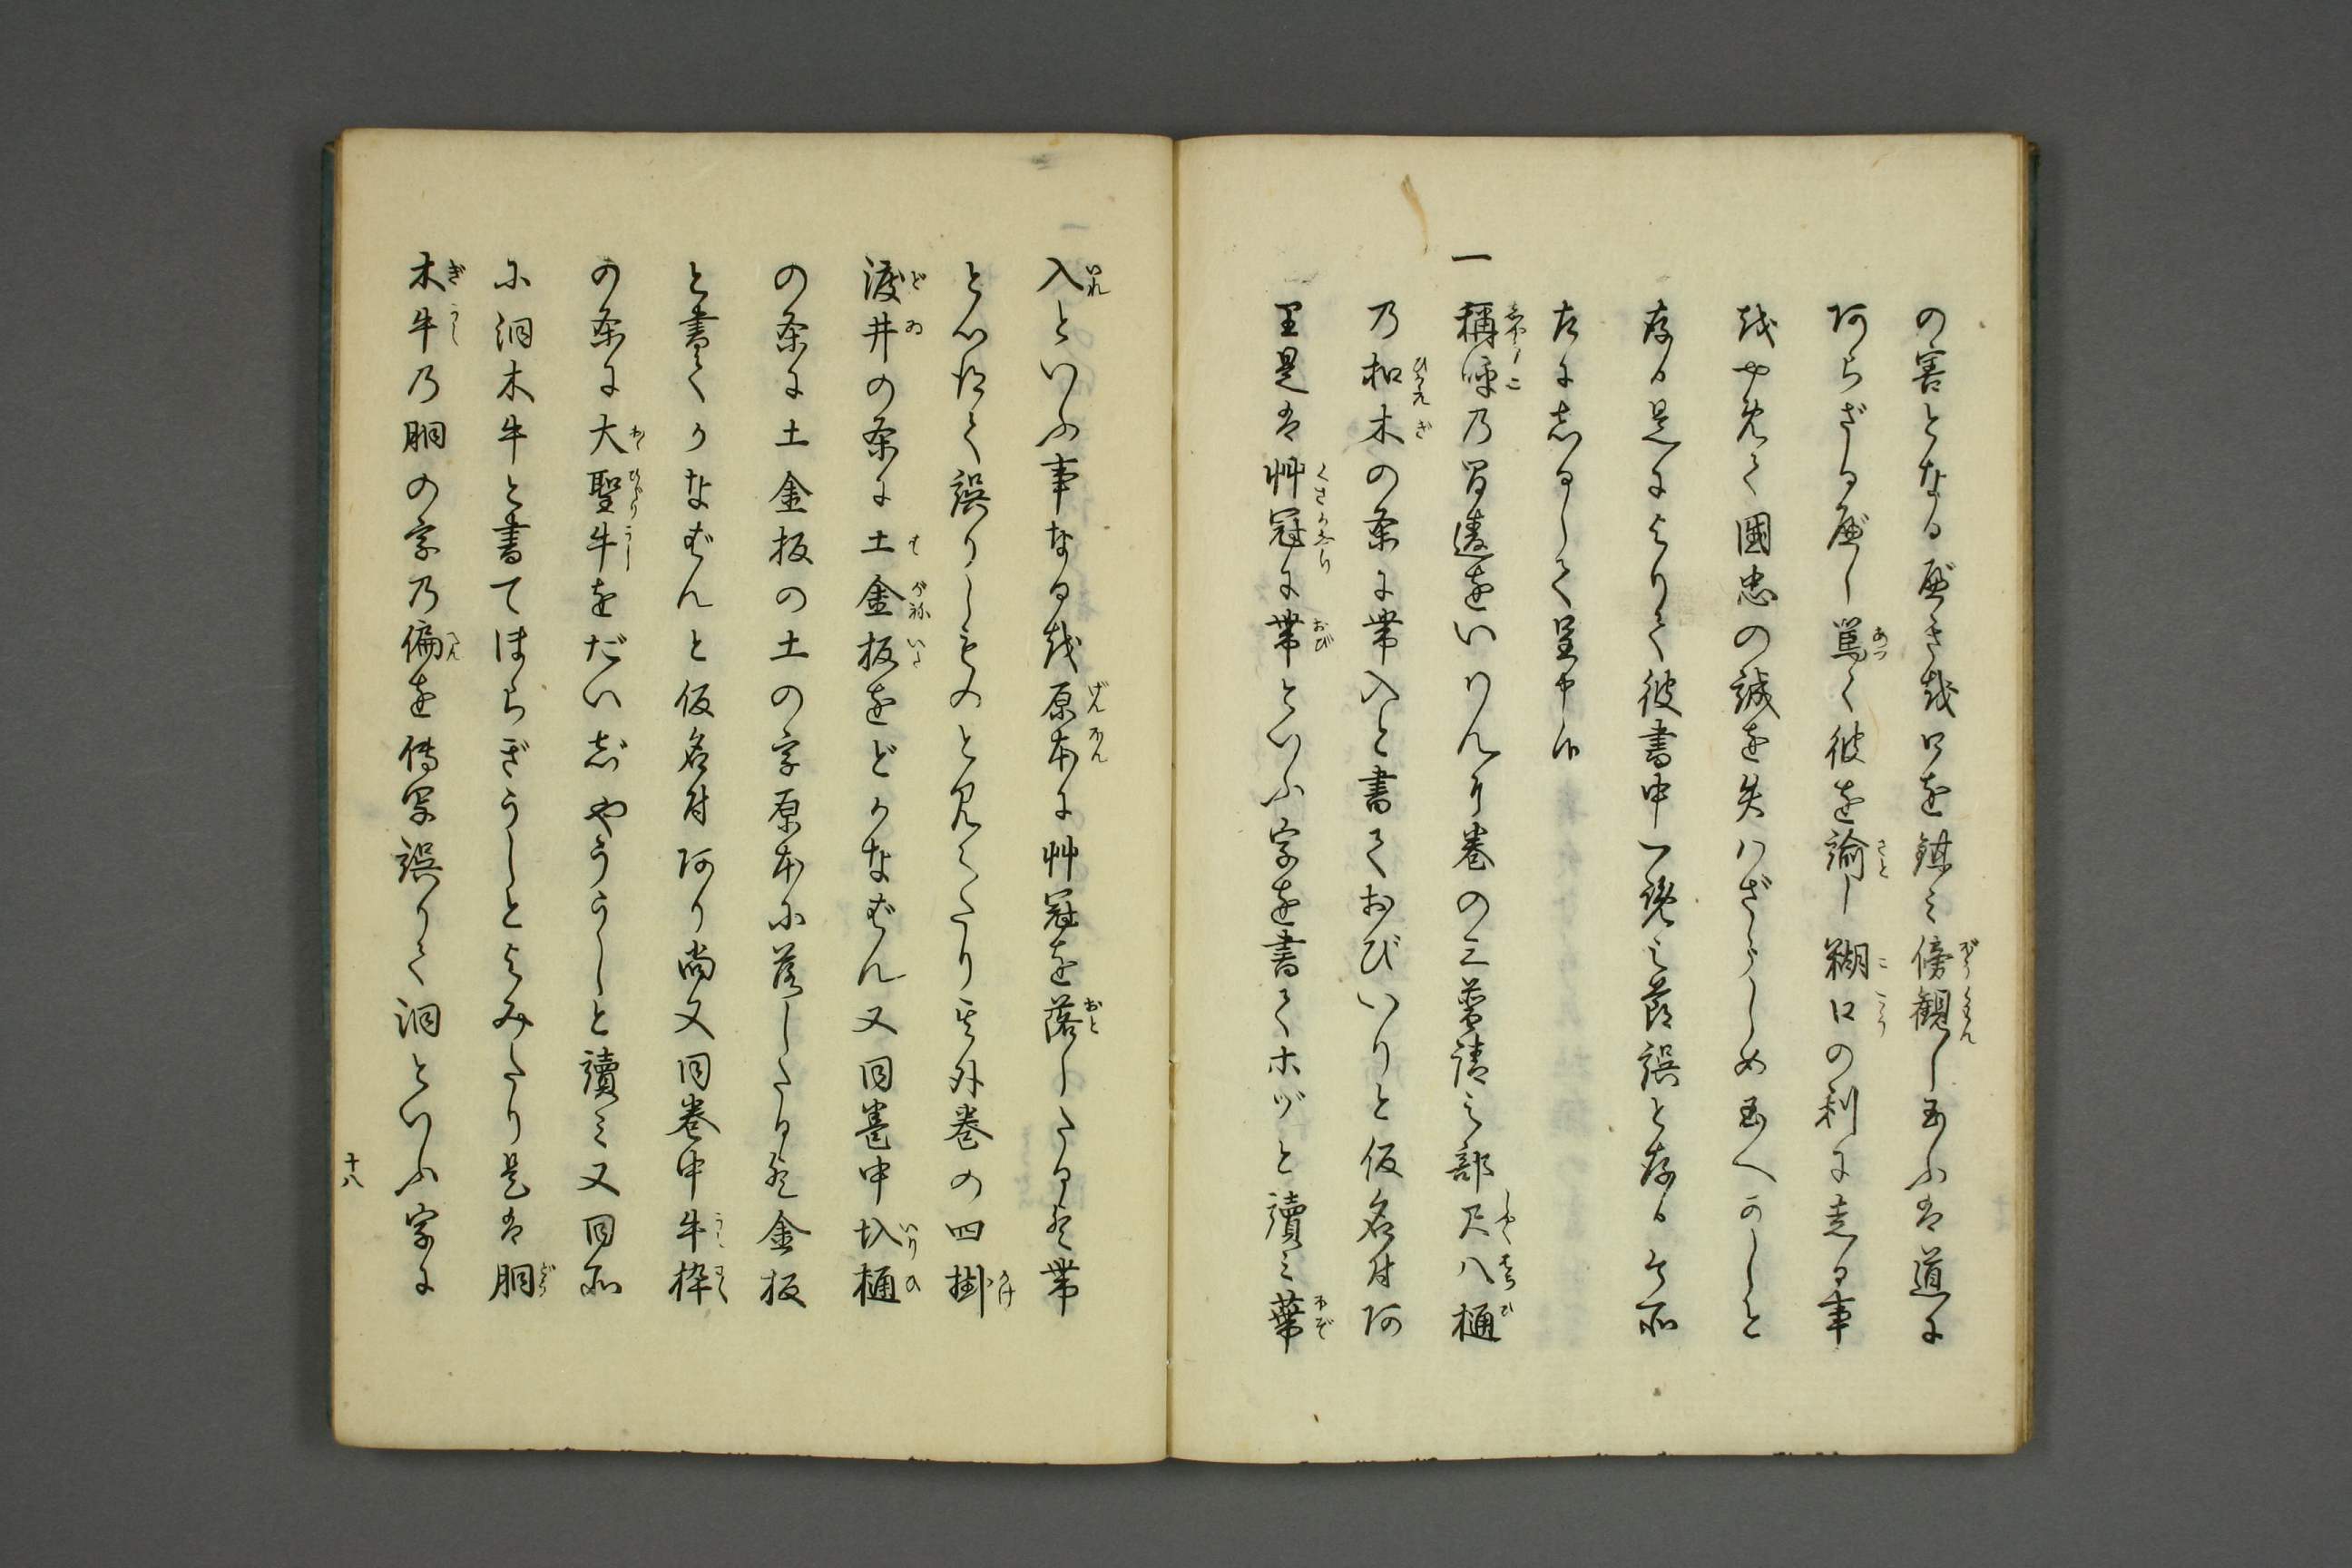 の害となる歴き哉口を鉗み傍観し玉ふは道に
阿らざる歴し篤く彼を諭し糊口の利に走る事
越やめて國忠の誠を失ハざらしめ玉へかしと
存る是によりて彼書中一覧之節誤と存る所
左に志るして呈申候
一 稱呼乃間違をいはんに巻の三普請之部尺八樋
乃扣木の条に帯入と書ておびいりと仮名付阿
里是は艸冠に帯といふ字を書てホゾと讀み蔕
入といふ事なる越原本に艸冠を落したるを帯
と心得て誤りしものと見へたり其外巻の四掛
渡井の条に土金板をどかなむんと又同巻中圦樋
の条に土金板の土の字原本に落したるを金板
と書てかなむんと仮名付阿り尚又同巻中牛枠
の条に大聖牛をだいじやううしと讀み又同所
に洞木牛と書てほらぎうしとよみたり是は胴
木牛乃胴の字乃偏を傳写誤りて洞といふ字に
十八